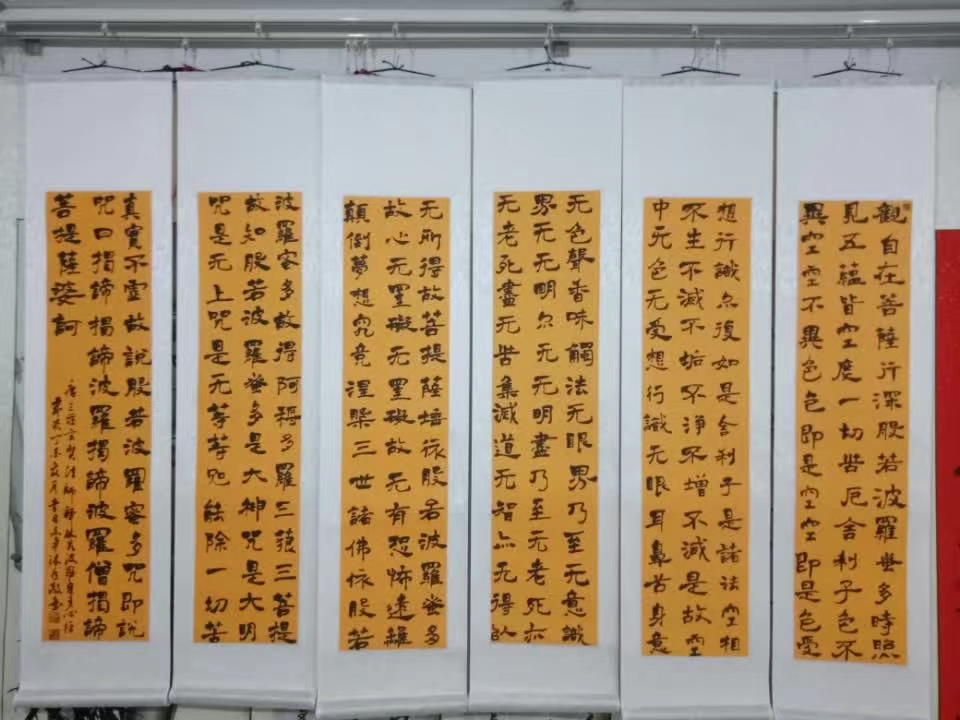 觀自在菩薩行深般若波羅蜜多時照
見五蘊皆空度一切苦厄舍利子色不
異空空不異色色即是空空即是色受
想行識亦復如是舍利子是諸法空相
不生不滅不垢不淨不增不減是故空
中无色无受想行識无眼耳鼻舌身意
无色聲香味觸法无眼界乃至无意識
界无无明亦无无明盡乃至无老死亦
无老死盡无苦集滅道无智亦无得以
无所得故菩提薩埵依般若波羅蜜多
故心无罣礙无罣礙故无有恐怖遠離
顛倒夢想究竟涅槃三世諸佛依般若
波羅蜜多故得阿耨多羅三藐三菩提
故知般若波羅蜜多是大神咒是大明
咒是无上咒是无等等咒能除一切苦
真實不虛故說般若波羅蜜多咒即說
咒曰揭諦揭諦波羅揭諦波羅僧揭諦
菩提薩婆訶
唐三藏玄奘法師譯般若波羅蜜多心經